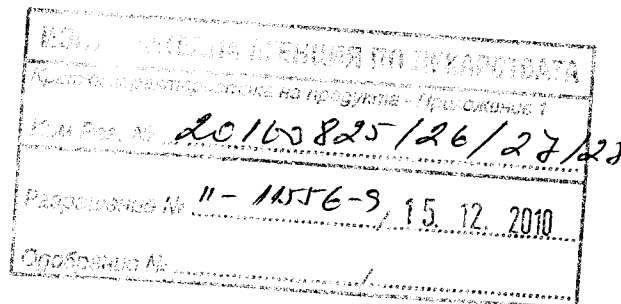 ИЗПЪЛНИТЕЛНА АГЕНЦИЯ ПО ЛЕКАРСТВАТА
Кратка характеристика на продукта - Приложение 1
Към Рег. №
Разрешение № II-11556-9 / 15. 12. 2010
Одобрение № /